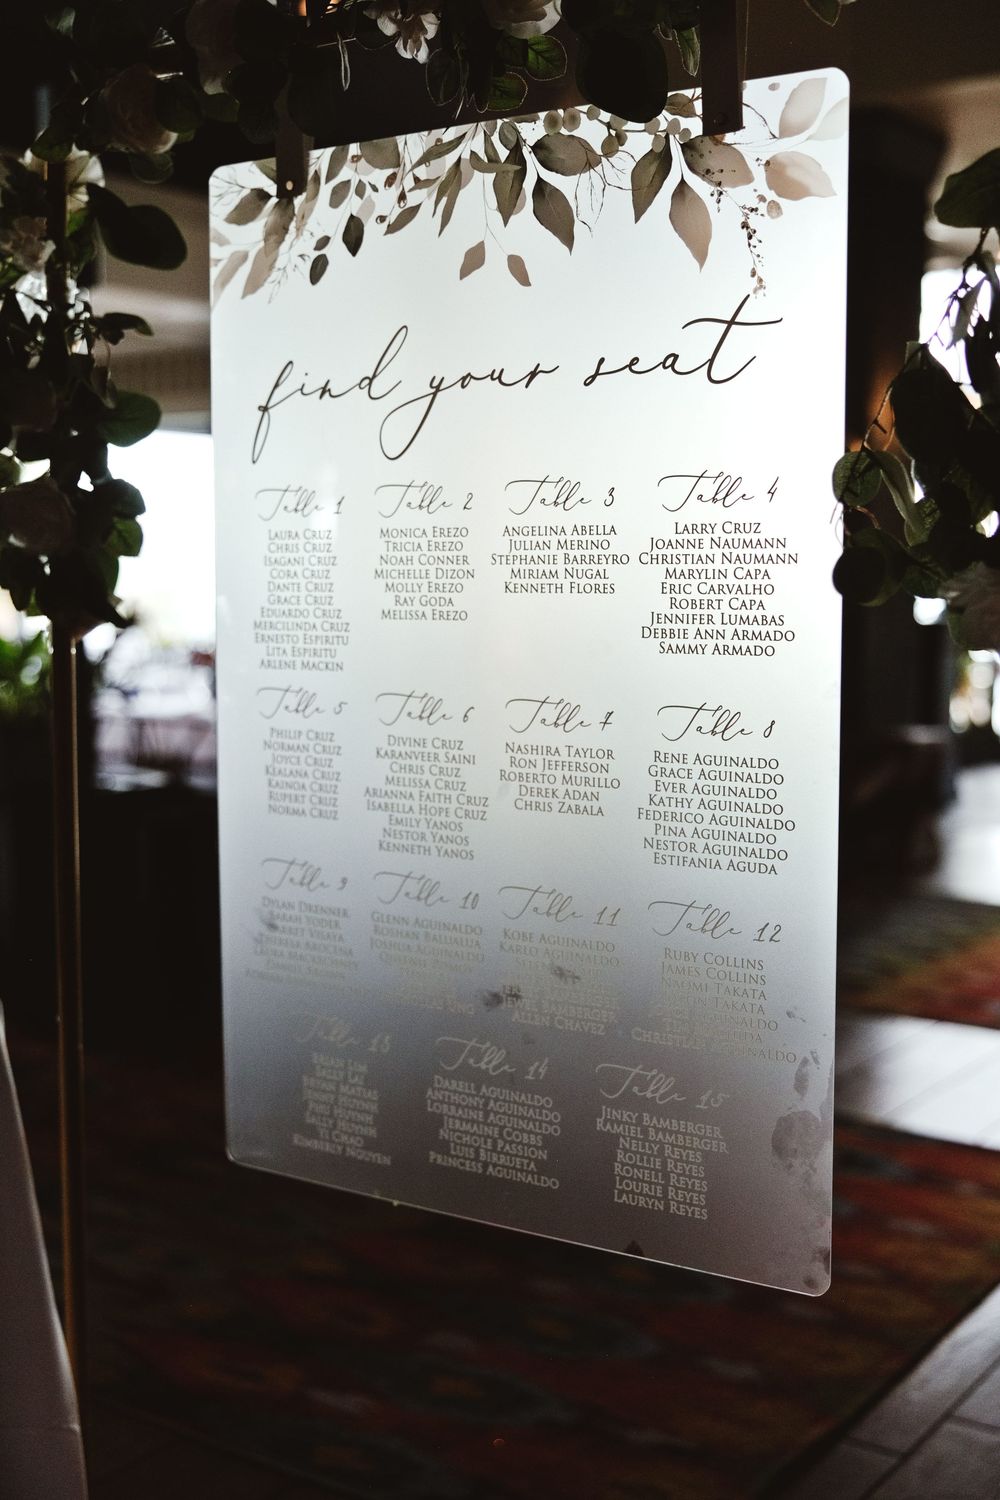 find your seat
Table 1
LAURA CRUZ
CHRIS CRUZ
ISAGANI CRUZ
CORA CRUZ
DANTE CRUZ
GRACE CRUZ
EDUARDO CRUZ
MERCILINDA CRUZ
ERNESTO ESPIRITU
LITA ESPIRITU
ARLENE MACKIN
Table 2
MONICA EREZO
TRICIA EREZO
NOAH CONNER
MICHELLE DIZON
MOLLY EREZO
RAY GODA
MELISSA EREZO
Table 3
ANGELINA ABELLA
JULIAN MERINO
STEPHANIE BARREYRO
MIRIAM NUGAL
KENNETH FLORES
Table 4
LARRY CRUZ
JOANNE NAUMANN
CHRISTIAN NAUMANN
MARYLIN CAPA
ERIC CARVALHO
ROBERT CAPA
JENNIFER LUMABAS
DEBBIE ANN ARMADO
SAMMY ARMADO
Table 5
PHILIP CRUZ
NORMAN CRUZ
JOYCE CRUZ
KEALANA CRUZ
KAINOA CRUZ
RUPERT CRUZ
NORMA CRUZ
Table 6
DIVINE CRUZ
KARANVEER SAINI
CHRIS CRUZ
MELISSA CRUZ
ARIANNA FAITH CRUZ
ISABELLA HOPE CRUZ
EMILY YANOS
NESTOR YANOS
KENNETH YANOS
Table 7
NASHIRA TAYLOR
RON JEFFERSON
ROBERTO MURILLO
DEREK ADAN
CHRIS ZABALA
Table 8
RENE AGUINALDO
GRACE AGUINALDO
EVER AGUINALDO
KATHY AGUINALDO
FEDERICO AGUINALDO
PINA AGUINALDO
NESTOR AGUINALDO
ESTIFANIA AGUDA
Table 9
DYLAN DRENNER
SARAH YODER
Table 10
GLENN AGUINALDO
ROSHAN BALUALUA
JOSHUA AGUINALDO
KING
Table 11
KOBE AGUINALDO
KARLO AGUINALDO
BAMBERGER
ALLEN CHAVEZ
Table 12
RUBY COLLINS
JAMES COLLINS
NAOMI TAKATA
TAKATA
AGUINALDO
AGUINALDO
Table 13
BRIAN LIM
SALLY LAI
BRYAN MATIAS
JENNY HUYNH
PHU HUYNH
SALLY HUYNH
TI CHAO
KIMBERLY NGUYEN
Table 14
DARELL AGUINALDO
ANTHONY AGUINALDO
LORRAINE AGUINALDO
JERMAINE COBBS
NICHOLE PASSION
LUIS BIRRUETA
PRINCESS AGUINALDO
Table 15
JINKY BAMBERGER
RAMIEL BAMBERGER
NELLY REYES
ROLLIE REYES
RONELL REYES
LOURIE REYES
LAURYN REYES